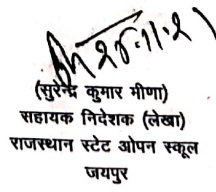 २६.११.२१
(सुरेन्द्र कुमार मीणा)
सहायक निदेशक (लेखा)
राजस्थान स्टेट ओपन स्कूल
जयपुर